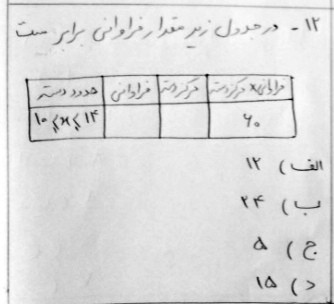 ۱۲- در جدول زیر مقدار فراوانی برابر است
حدود دسته فراوانی مرکز دسته فراوانی × مرکز دسته
۱۰ ≤ x ≤ ۱۴ ۶۰
الف) ۱۲
ب) ۲۴
ج) ۵
د) ۱۵